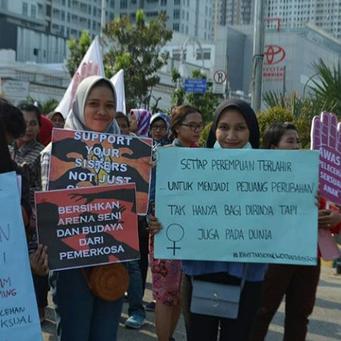 TOYOTA
SUPPORT
YOUR
SISTERS
NOT JUST
BERSIHKAN
ARENA SENI
DAN BUDAYA
DARI
PEMERKOSA
SETIAP PEREMPUAN TERLAHIR
UNTUK MENJADI PEJUANG PERUBAHAN
TAK HANYA BAGI DIRINYA TAPI
JUGA PADA DUNIA
AWAS